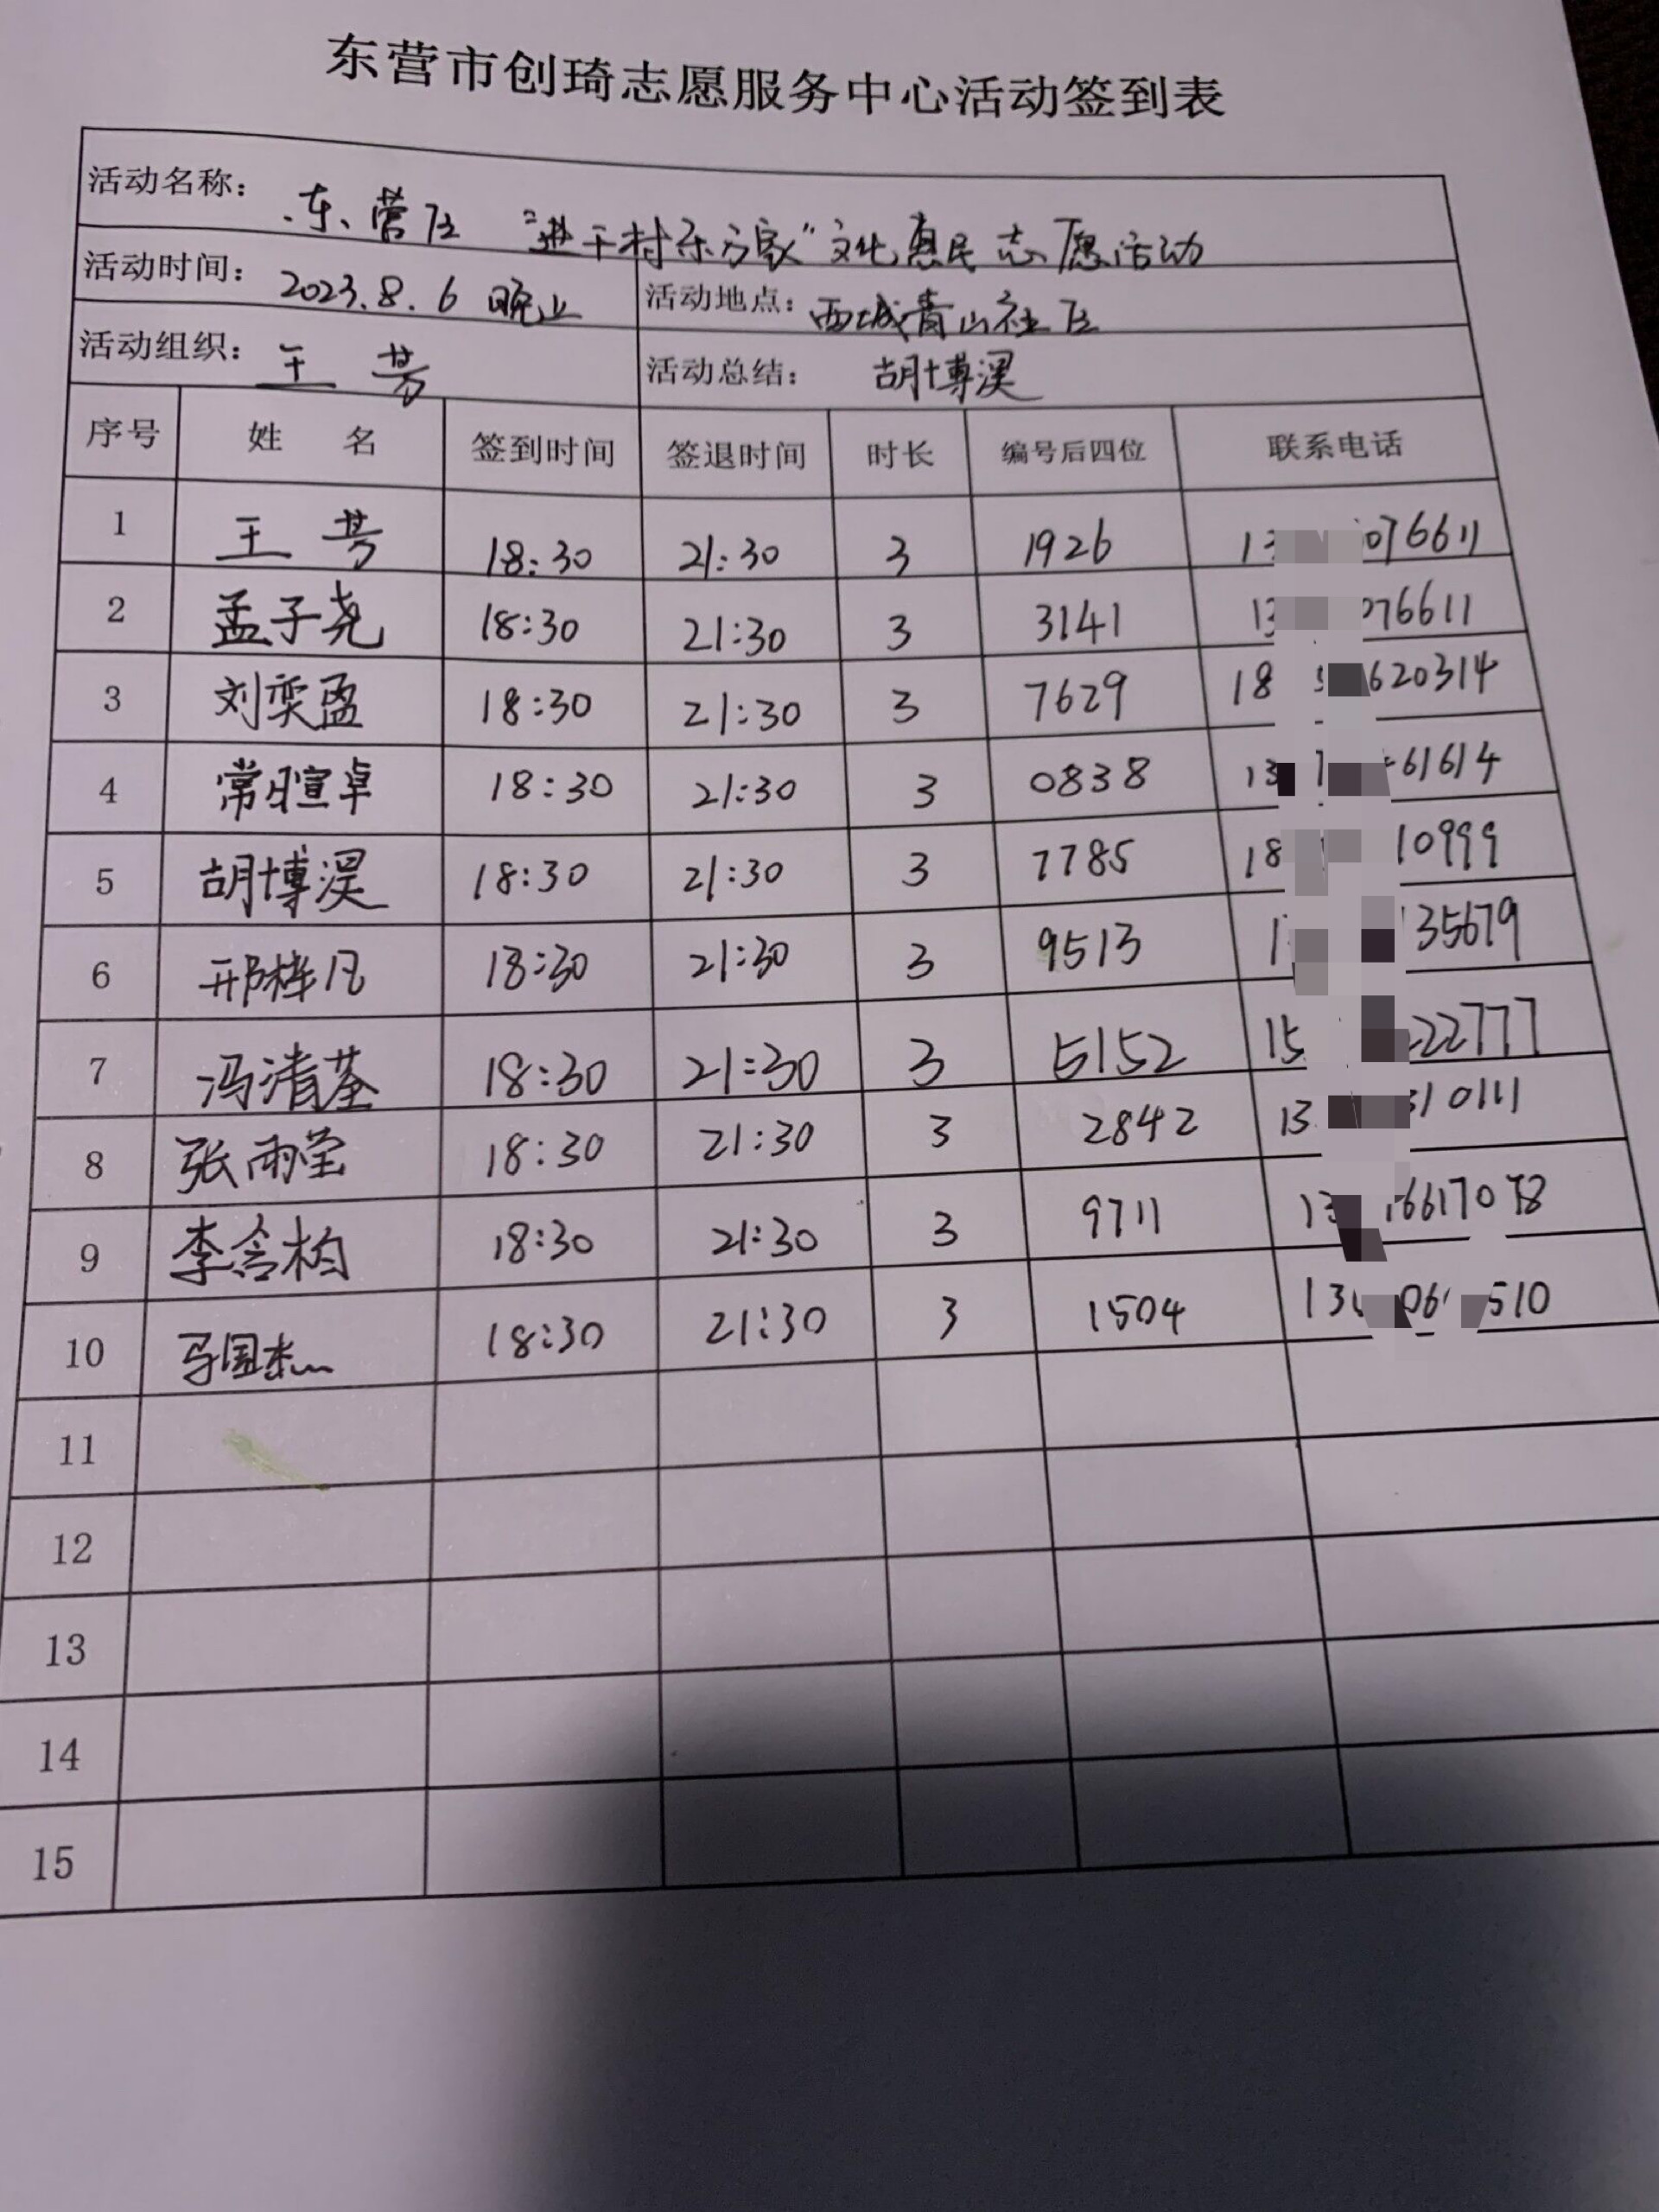 东营市创琦志愿服务中心活动签到表
活动名称： 东营区 "进千村乐万家"文化惠民志愿活动
活动时间： 2023.8.6 晚上 活动地点： 西城青山社区
活动组织： 王芳 活动总结： 胡博淏
序号 姓 名 签到时间 签退时间 时长 编号后四位 联系电话
1 王芳 18:30 21:30 3 1926 13 076611
2 孟子尧 18:30 21:30 3 3141 13 076611
3 刘奕盈 18:30 21:30 3 7629 18 620314
4 常暄卓 18:30 21:30 3 0838 13 61614
5 胡博淏 18:30 21:30 3 7785 18 10999
6 邢梓凡 18:30 21:30 3 9513 1 135679
7 冯清荃 18:30 21:30 3 5152 15 222777
8 张雨莹 18:30 21:30 3 2842 13 310111
9 李含柏 18:30 21:30 3 9711 13 6617078
10 马国杰 18:30 21:30 3 1504 13 06 510
11
12
13
14
15